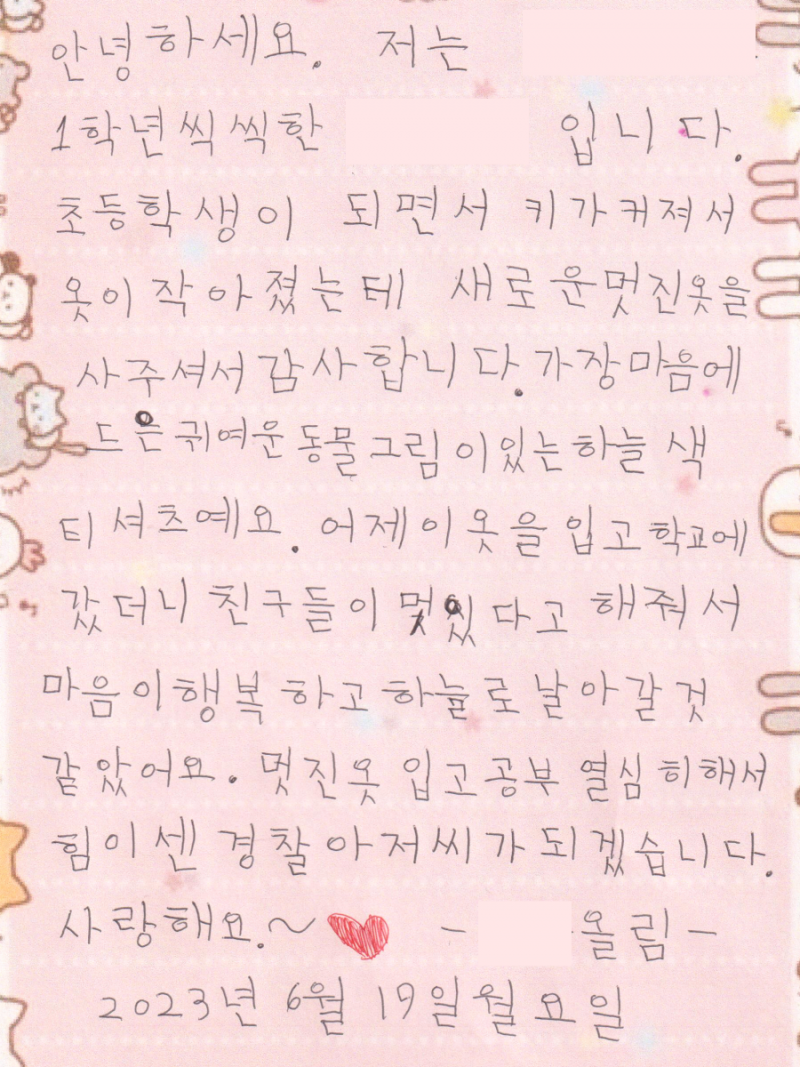 안녕하세요. 저는
1학년씩씩한 입니다.
초등학생이 되면서 키가커져서
옷이작아졌는데 새로운멋진옷을
사주셔서감사합니다.가장마음에
드은귀여운동물그림이있는하늘색
티셔츠예요. 어제이옷을입고학교에
갔더니 친구들이 멋있다고 해줘서
마음이행복하고하늘로날아갈것
같았어요. 멋진옷 입고공부 열심히해서
힘이센경찰아저씨가되겠습니다.
사랑해요.~ - 올림-
2023년 6월 19일월요일